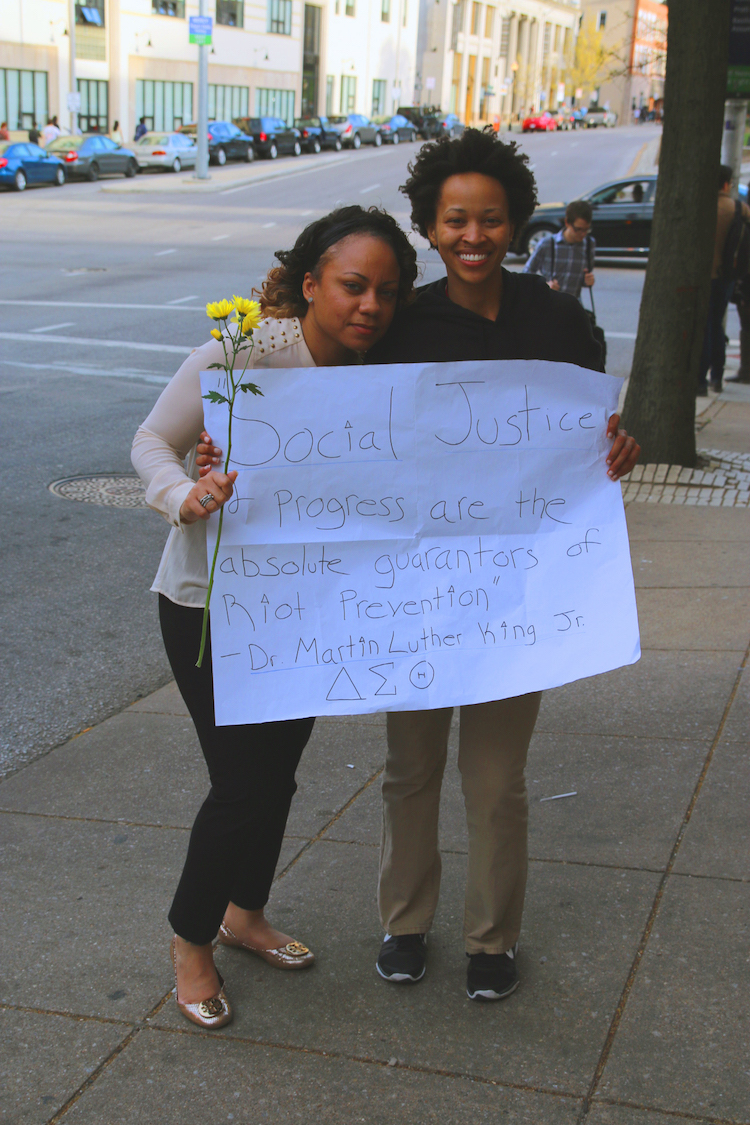 "Social Justice
& Progress are the
absolute guarantors of
Riot Prevention"
- Dr. Martin Luther King Jr.
ΔΣΘ